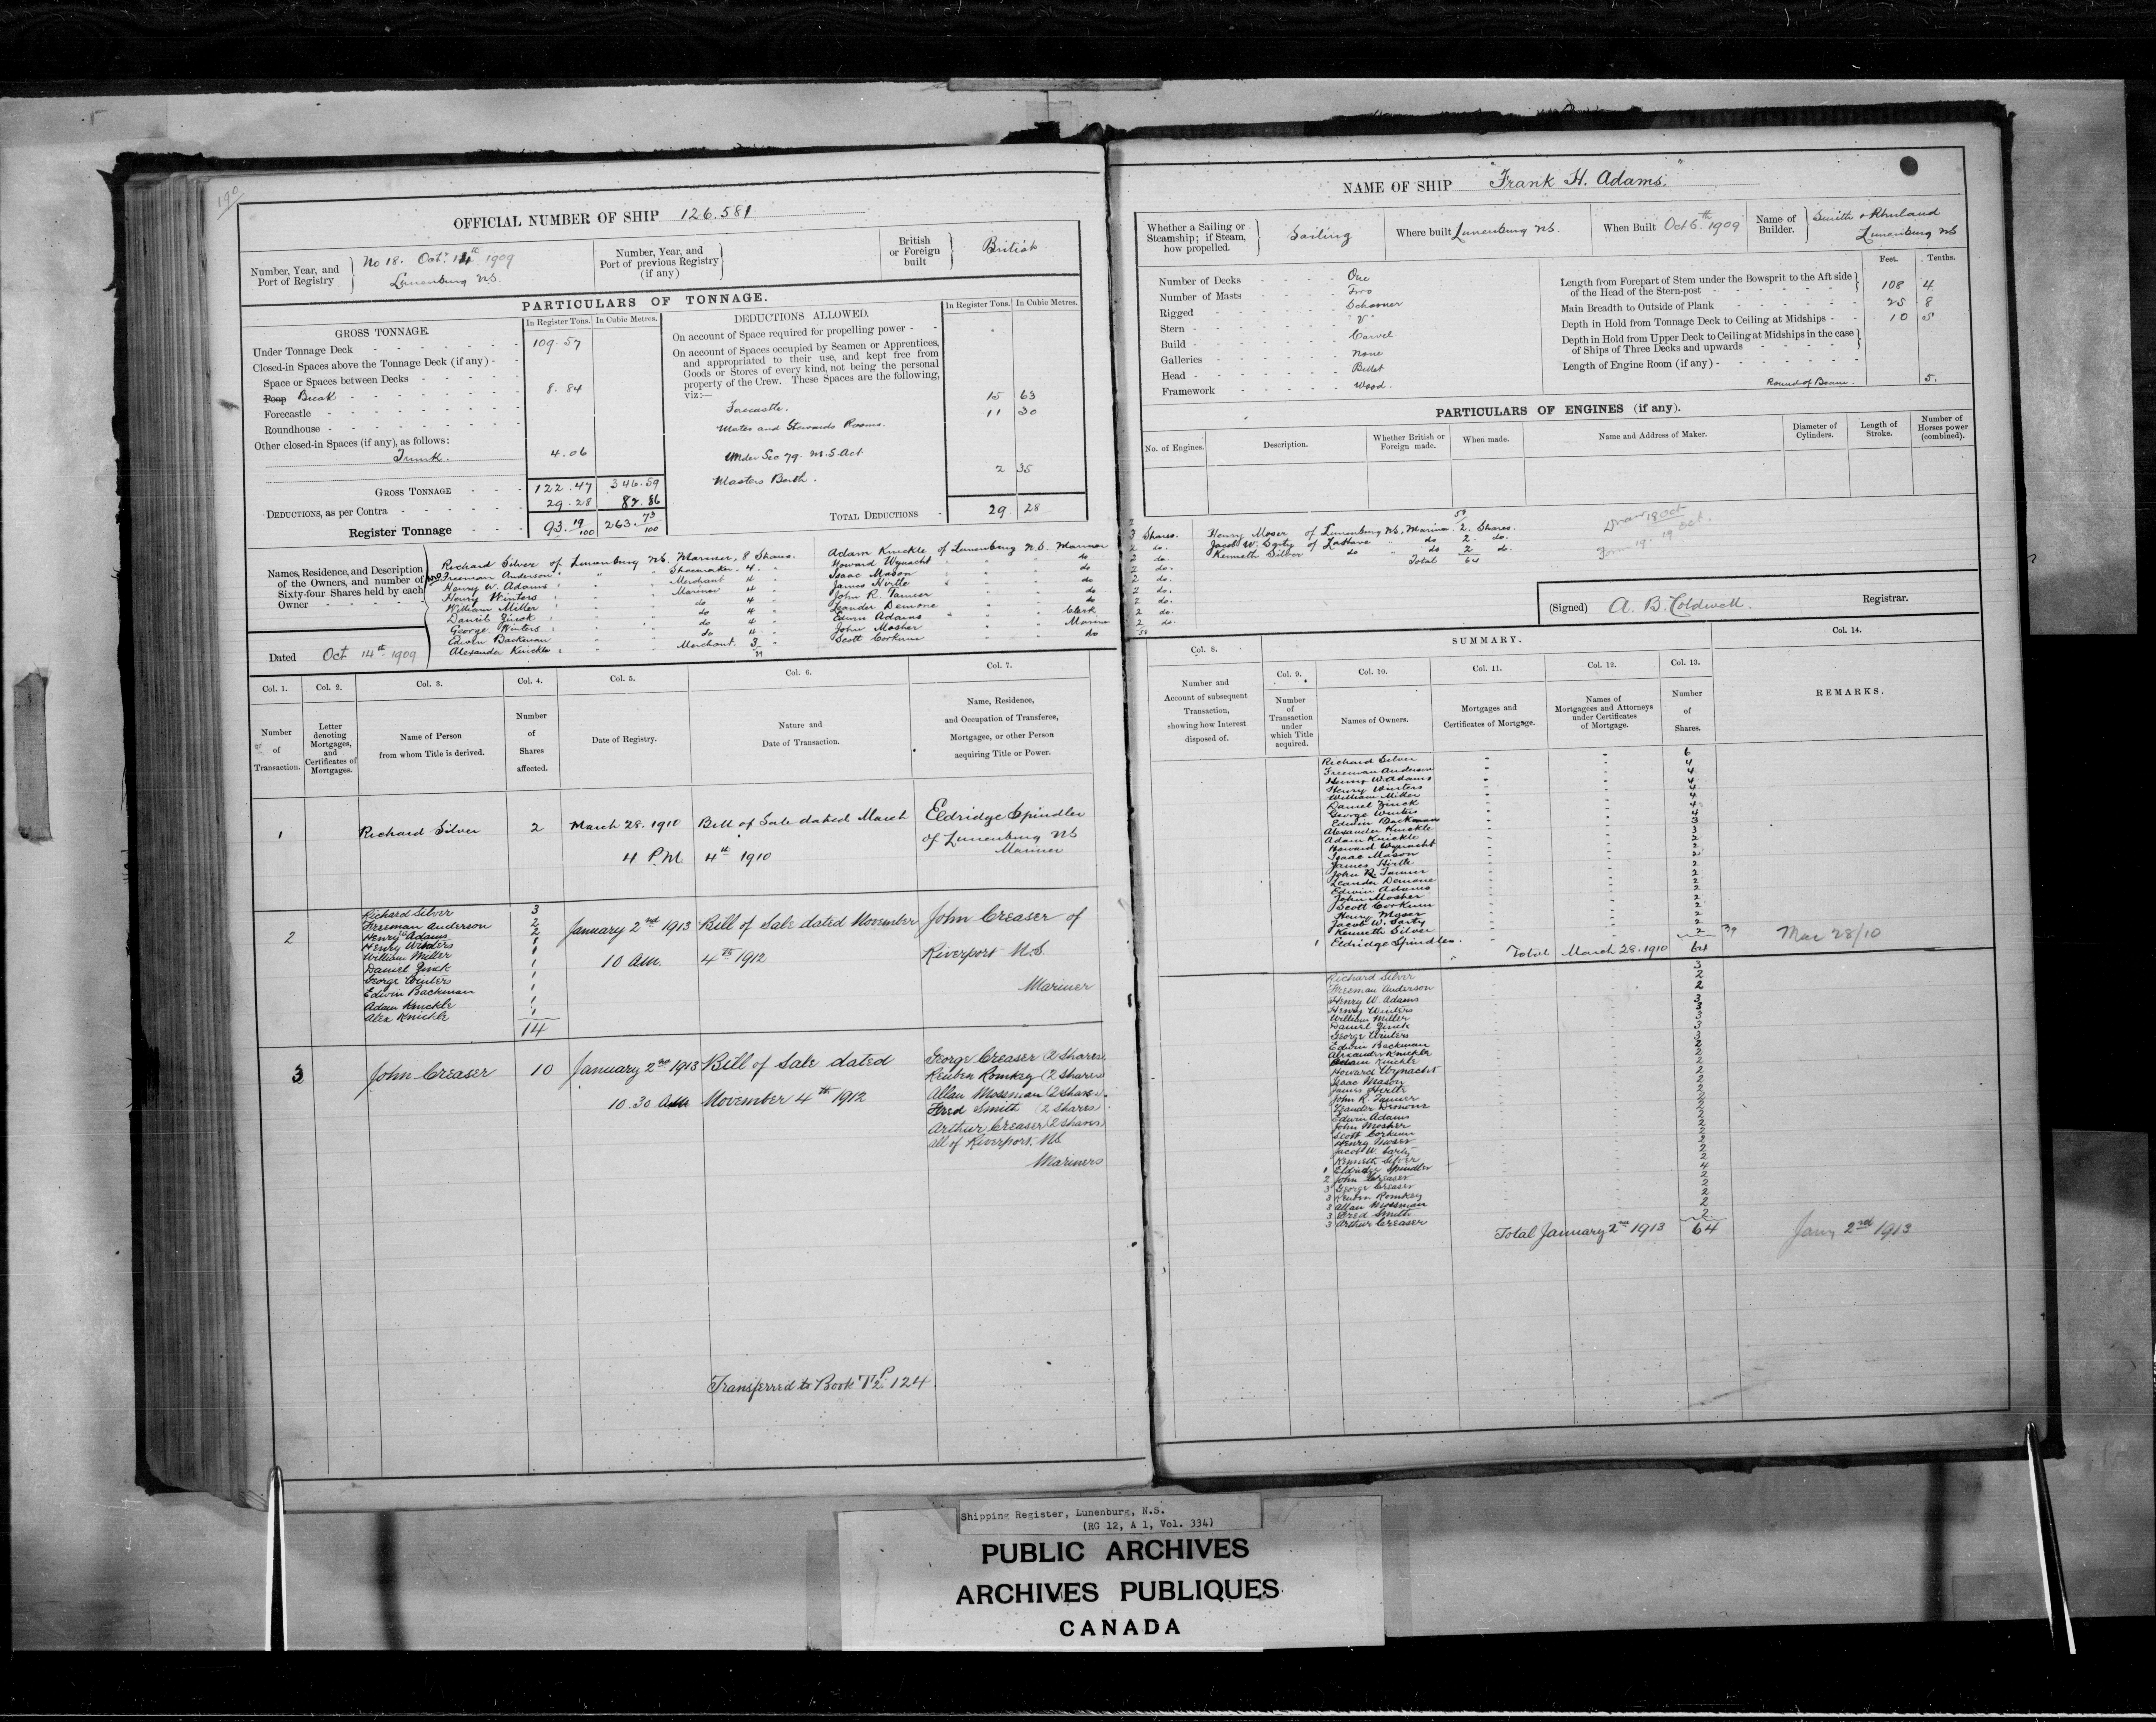 190
OFFICIAL NUMBER OF SHIP 126.581
Number, Year, and Port of Registry
No 18. Oct. 14th 1909
Lunenburg NS.
Number, Year, and Port of previous Registry (if any)
British or Foreign built
British
PARTICULARS OF TONNAGE.
GROSS TONNAGE.
In Register Tons. In Cubic Metres.
Under Tonnage Deck 109.57
Closed-in Spaces above the Tonnage Deck (if any)
Space or Spaces between Decks
Poop Break 8.84
Forecastle
Roundhouse
Other closed-in Spaces (if any), as follows:
Trunk. 4.06
GROSS TONNAGE 122.47 346.59
DEDUCTIONS, as per Contra 29.28 82.86
Register Tonnage 93.19/100 263.73/100
DEDUCTIONS ALLOWED.
In Register Tons. In Cubic Metres.
On account of Space required for propelling power
On account of Spaces occupied by Seamen or Apprentices,
and appropriated to their use, and kept free from
Goods or Stores of every kind, not being the personal
property of the Crew. These Spaces are the following,
viz:—
Forecastle. 15 63
Mates and Stewards Rooms. 11 30
Under Sec 79. M.S. Act
Masters Berth. 2 35
TOTAL DEDUCTIONS 29 28
Names, Residence, and Description of the Owners, and number of Sixty-four Shares held by each Owner
Richard Silver of Lunenburg NS. Mariner, 8 Shares.
Freeman Anderson " " Shoemaker 4 "
Henry W. Adams " " Merchant 4 "
Henry Winters " " Mariner 4 "
William Miller " " do 4 "
Daniel Zinck " " do 4 "
George Winters " " do 4 "
Edwin Backman " " do 4 "
Alexander Knickle " " Merchant. 3
39
Adam Knickle of Lunenburg N.S. Mariner
Howard Wynacht " " do
Isaac Mason " " do
James Hirtle " " do
John R. Tanner " " do
Leander Demone " " do
Edwin Adams " " Clerk
John Mosher " " Mariner
Scott Corkum " " do
Dated Oct 14th 1909
Col. 1. Col. 2. Col. 3. Col. 4. Col. 5. Col. 6. Col. 7.
Number of Transaction.
Letter denoting Mortgages, and Certificates of Mortgages.
Name of Person from whom Title is derived.
Number of Shares affected.
Date of Registry.
Nature and Date of Transaction.
Name, Residence, and Occupation of Transferee, Mortgagee, or other Person acquiring Title or Power.
1 Richard Silver 2 March 28. 1910 Bill of Sale dated March Eldridge Spindler
4 P.M. 4th 1910 of Lunenburg NS
Mariner
2
Richard Silver 3
Freeman Anderson 2
Henry W Adams 2
Henry Winters 1
William Miller 1
Daniel Zinck 1
George Winters 1
Edwin Backman 1
Adam Knickle 1
Alex Knickle 1
14
January 2nd 1913 Bill of Sale dated November John Creaser of
10 AM. 4th 1912 Riverport N.S.
Mariner
3 John Creaser 10 January 2nd 1913 Bill of Sale dated
10.30 AM November 4th 1912
George Creaser (2 Shares)
Reuben Romkey (2 Shares)
Allan Mossman (2 Shares)
Fred Smith (2 Shares)
Arthur Creaser (2 Shares)
all of Riverport, NS
Mariners
Transferred to Book T2 P 124
NAME OF SHIP "Frank H. Adams."
Whether a Sailing or Steamship; if Steam, how propelled.
Sailing
Where built Lunenburg NS.
When Built Oct 6th 1909
Name of Builder.
Smith & Rhuland
Lunenburg NS
Number of Decks One
Number of Masts Two
Rigged Schooner
Stern "V"
Build Carvel
Galleries None
Head Billet
Framework Wood.
Feet. Tenths.
Length from Forepart of Stem under the Bowsprit to the Aft side of the Head of the Stern-post 108 4
Main Breadth to Outside of Plank 25 8
Depth in Hold from Tonnage Deck to Ceiling at Midships 10 5
Depth in Hold from Upper Deck to Ceiling at Midships in the case of Ships of Three Decks and upwards
Length of Engine Room (if any)
Round of Beam. 5.
PARTICULARS OF ENGINES (if any).
No. of Engines.
Description.
Whether British or Foreign made.
When made.
Name and Address of Maker.
Diameter of Cylinders.
Length of Stroke.
Number of Horses power (combined).
3 Shares.
2 do.
2 do.
2 do.
2 do.
2 do.
2 do.
2 do.
2 do.
58
58
Henry Moser of Lunenburg NS, Mariner 2. Shares.
Jacob W. Sarty of LaHave " do 2. do.
Kenneth Silver do " do 2 do.
Total 64
(Signed) A. B. Coldwell. Registrar.
SUMMARY.
Col. 8. Col. 9. Col. 10. Col. 11. Col. 12. Col. 13. Col. 14.
Number and Account of subsequent Transaction, showing how Interest disposed of.
Number of Transaction under which Title acquired.
Names of Owners.
Mortgages and Certificates of Mortgage.
Names of Mortgagees and Attorneys under Certificates of Mortgage.
Number of Shares.
REMARKS.
Richard Silver 6
Freeman Anderson 4
Henry W. Adams 4
Henry Winters 4
William Miller 4
Daniel Zinck 4
George Winters 4
Edwin Backman 4
Alexander Knickle 3
Adam Knickle 3
Howard Wynacht 2
Isaac Mason 2
James Hirtle 2
John R. Tanner 2
Leander Demone 2
Edwin Adams 2
John Mosher 2
Scott Corkum 2
Henry Moser 2
Jacob W. Sarty 2
Kenneth Silver 2
1 Eldridge Spindler. 2
Total March 28. 1910 64
Mar 28/10
Richard Silver 3
Freeman Anderson 2
Henry W. Adams 2
Henry Winters 3
William Miller 3
Daniel Zinck 3
George Winters 3
Edwin Backman 3
Alexander Knickle 2
Adam Knickle 2
Howard Wynacht 2
Isaac Mason 2
James Hirtle 2
John R. Tanner 2
Leander Demone 2
Edwin Adams 2
John Mosher 2
Scott Corkum 2
Henry Moser 2
Jacob W. Sarty 2
Kenneth Silver 2
1 Eldridge Spindler 2
2 John Creaser 4
3 George Creaser 2
3 Reuben Romkey 2
3 Allan Mossman 2
3 Fred Smith 2
3 Arthur Creaser 2
Total January 2nd 1913 64
Jany 2nd 1913
Shipping Register, Lunenburg, N.S.
(RG 12, A 1, Vol. 334)
PUBLIC ARCHIVES
ARCHIVES PUBLIQUES
CANADA